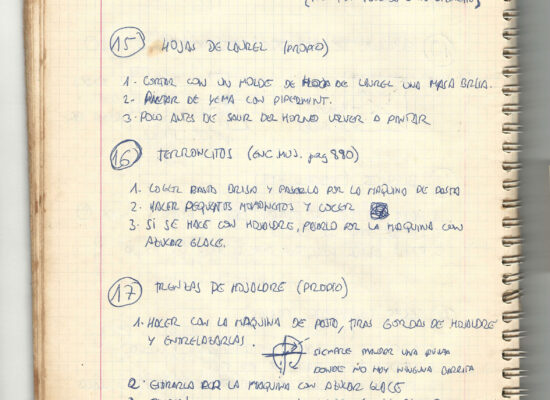 15 HOJAS DE LAUREL (PROPIO)
1 - CORTAR CON UN MOLDE DE HOJA DE LAUREL UNA MASA BRISA.
2 - PINTAR DE YEMA CON PIPERMINT.
3 - POLO ANTES DE SALIR DEL HORNEO VOLVER A PINTAR
16 TERRONCITOS (ENC. MUS. pag 890)
1. COGER PASTA BRISA Y PASARLA POR LA MAQUINA DE PASTA
2. HACER PEQUEÑOS MONONCITOS Y COCER
3. SI SE HACE CON HOJALDRE, PASARLO POR LA MAQUINA CON
AZUCAR GLACE.
17 TRENZAS DE HOJALDRE (PROPIO)
1. HACER CON LA MAQUINA DE PASTA, TIRAS GORDAS DE HOJALDRE
Y ENTRELAZARLAS.
SIEMPRE MANDAR UNA PUNTA
DONDE NO HAY NINGUNA BARRITA
2. ESTIRARLA POR LA MAQUINA CON AZUCAR GLACE